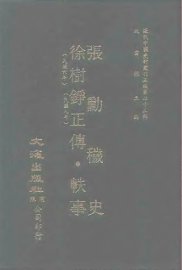 近代中國史料叢刊
沈雲龍主編
張勳穢史
徐樹錚正傳・軼事
文海出版社有限公司印行